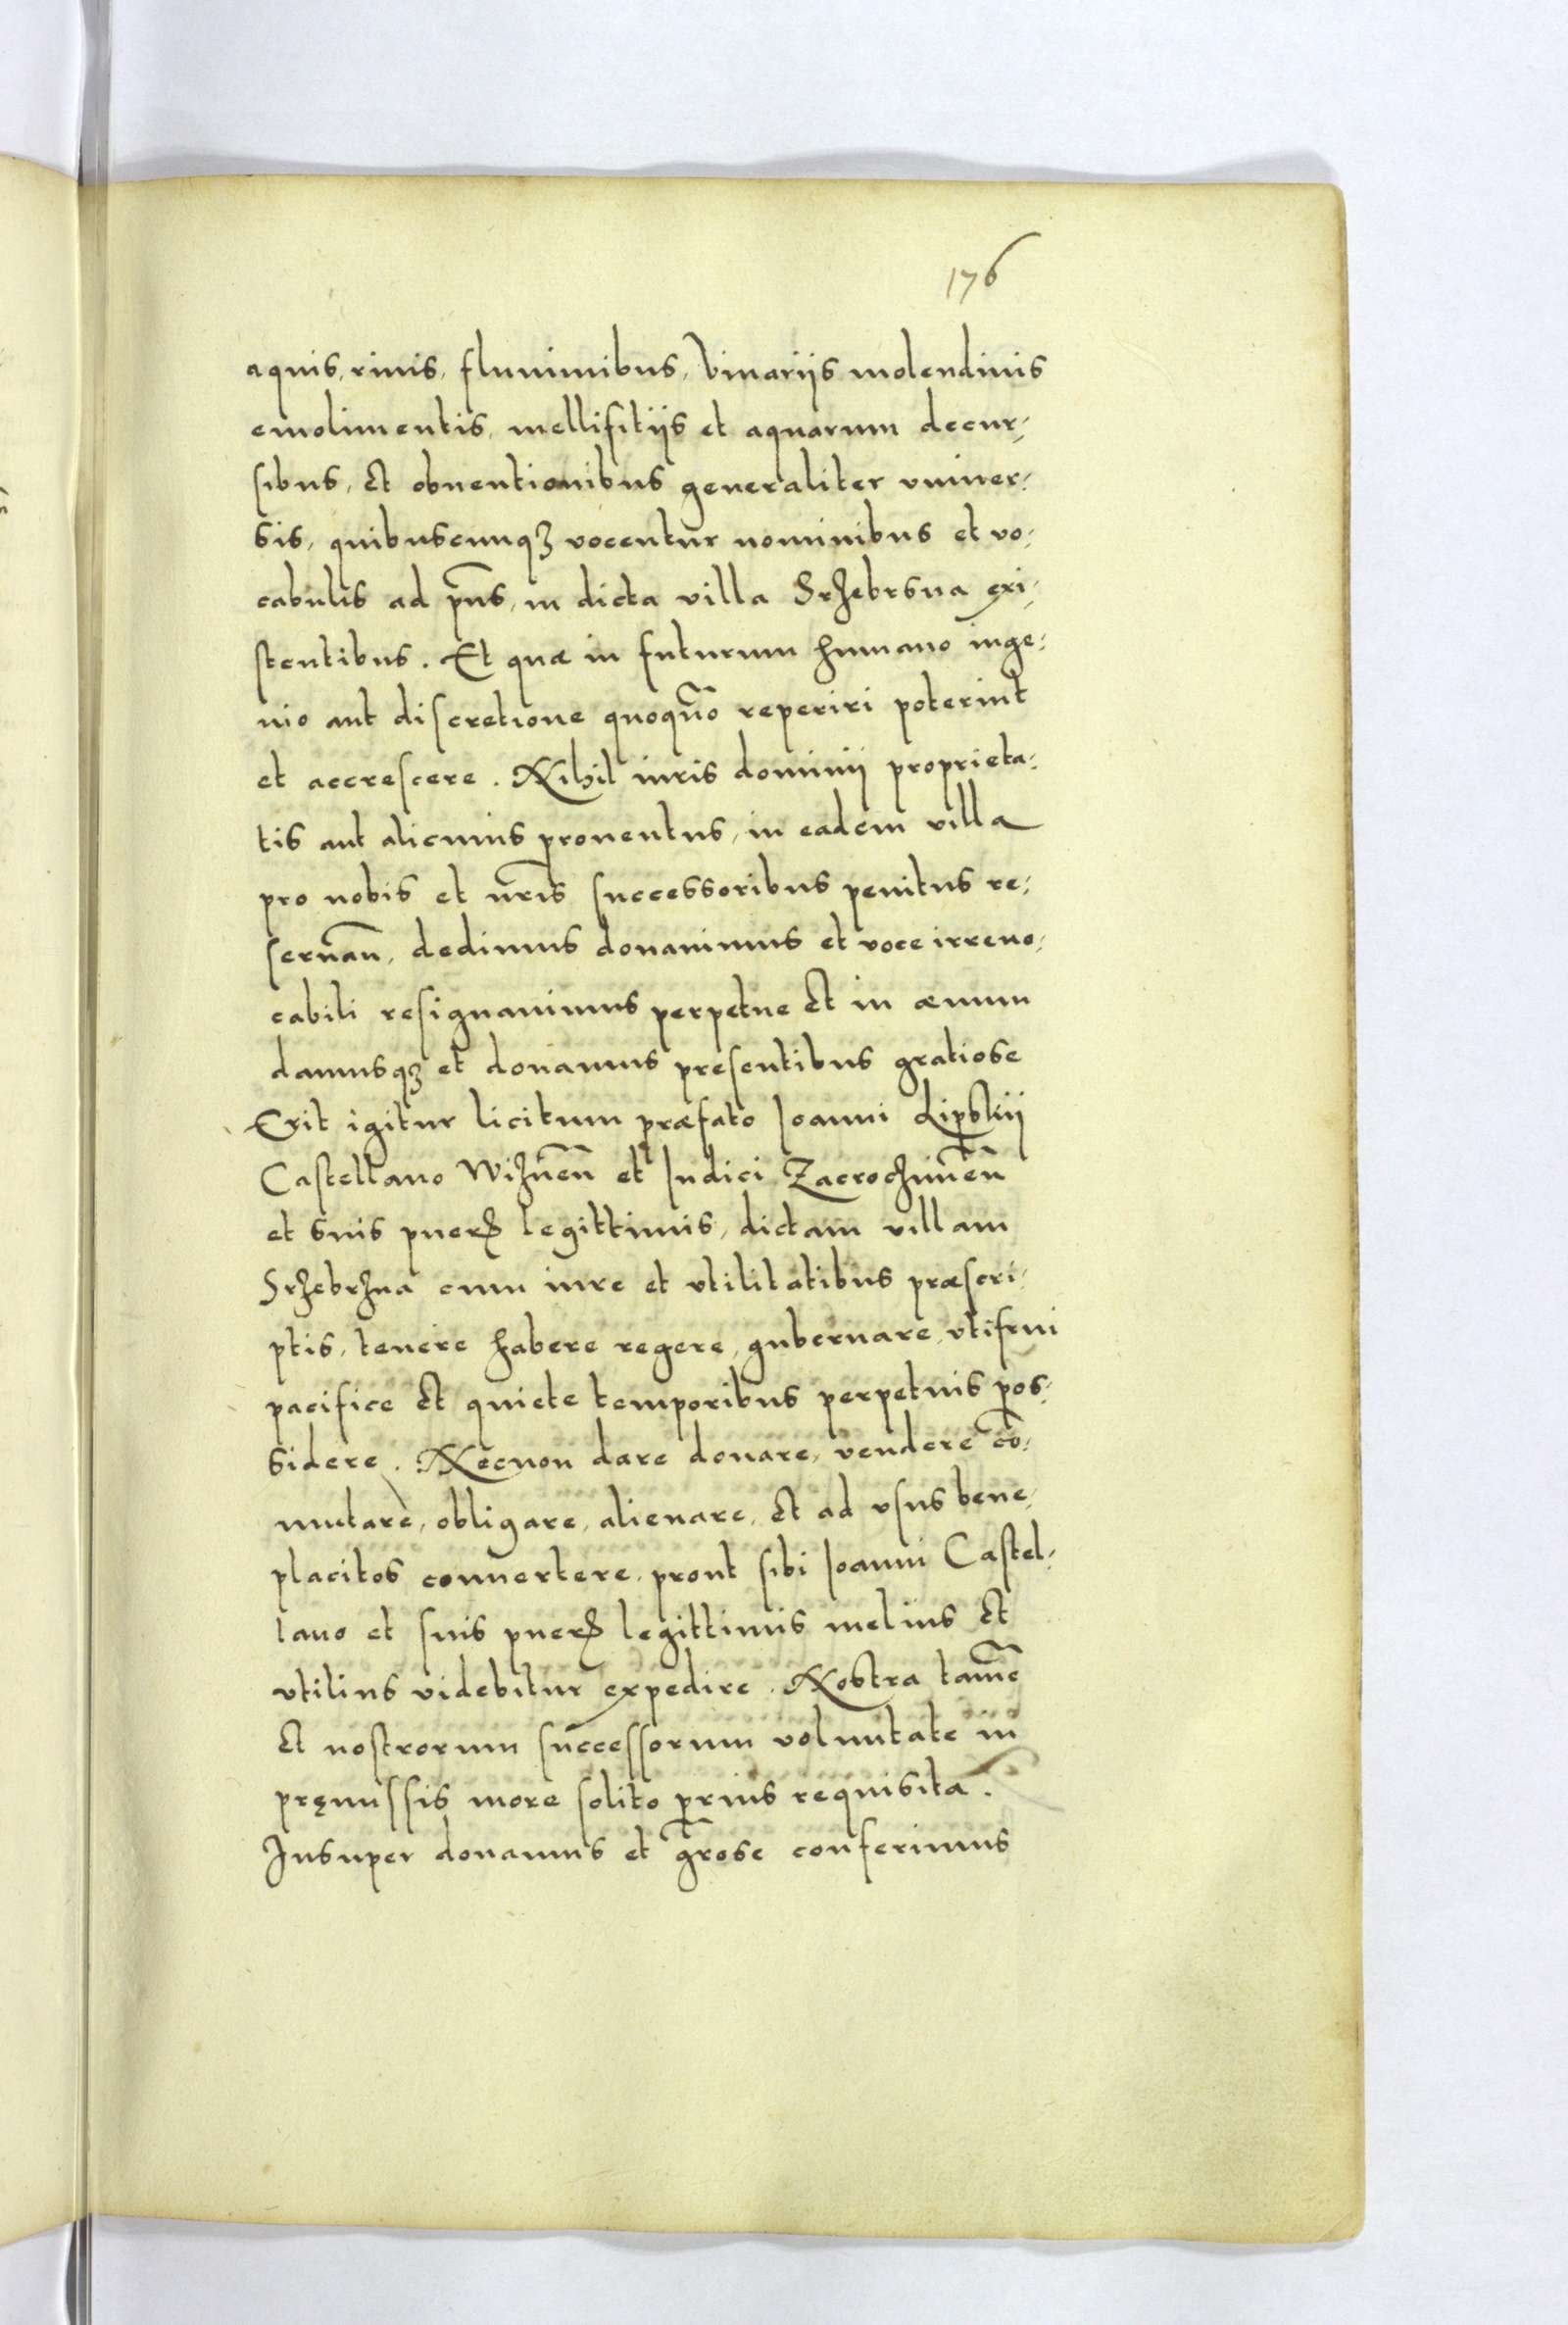 176
aquis, riuis, fluuimibus, Vinariis molendinis
emolimentis, mellifitiis et aquarum decur⸗
sibus, et obuentionibus generaliter vniuer⸗
sis, quibuscunqȝ vocentur nominibus et vo⸗
cabulis ad pn̄s, in dicta villa Srzebrsna exi⸗
stentibus. Et quæ in futurum humano inge⸗
nio aut discretione quoquo͞ reperiri poterint
et accrescere. Nihil iuris dominii proprieta⸗
tis aut alicuius prouentus, in eadem villa
pro nobis et nr̄is successoribus penitus re⸗
seruan̄, dedimus donauimus et voce irreuo⸗
cabili resignauimus perpetue et in æuum
damusqȝ et donamus presentibus gratiose
Erit igitur licitum præfato Ioanni Lipskii
Castellano Wiznen̄ et Iudici Zacrocziminen̄
et suis puerꝭ legittimis, dictam villam
Srzebrzna cum iure et vtilitatibus præscri⸗
ptis, tenere habere regere, gubernare, vtifrui
pacifice et quiete temporibus perpetuis pos⸗
sidere. Necnon dare donare, vendere co̅⸗
mutare, obligare, alienare, et ad vsus bene⸗
placitos conuertere, prout sibi Ioanni Castel⸗
lano et suis puerꝭ legittimis melius et
vtilius videbitur expedire. Nostra tame̅
et nostrorum successorum voluntate in
pręmissis more solito prius requisita.
Insuper donamus et gr̄ose conferimus